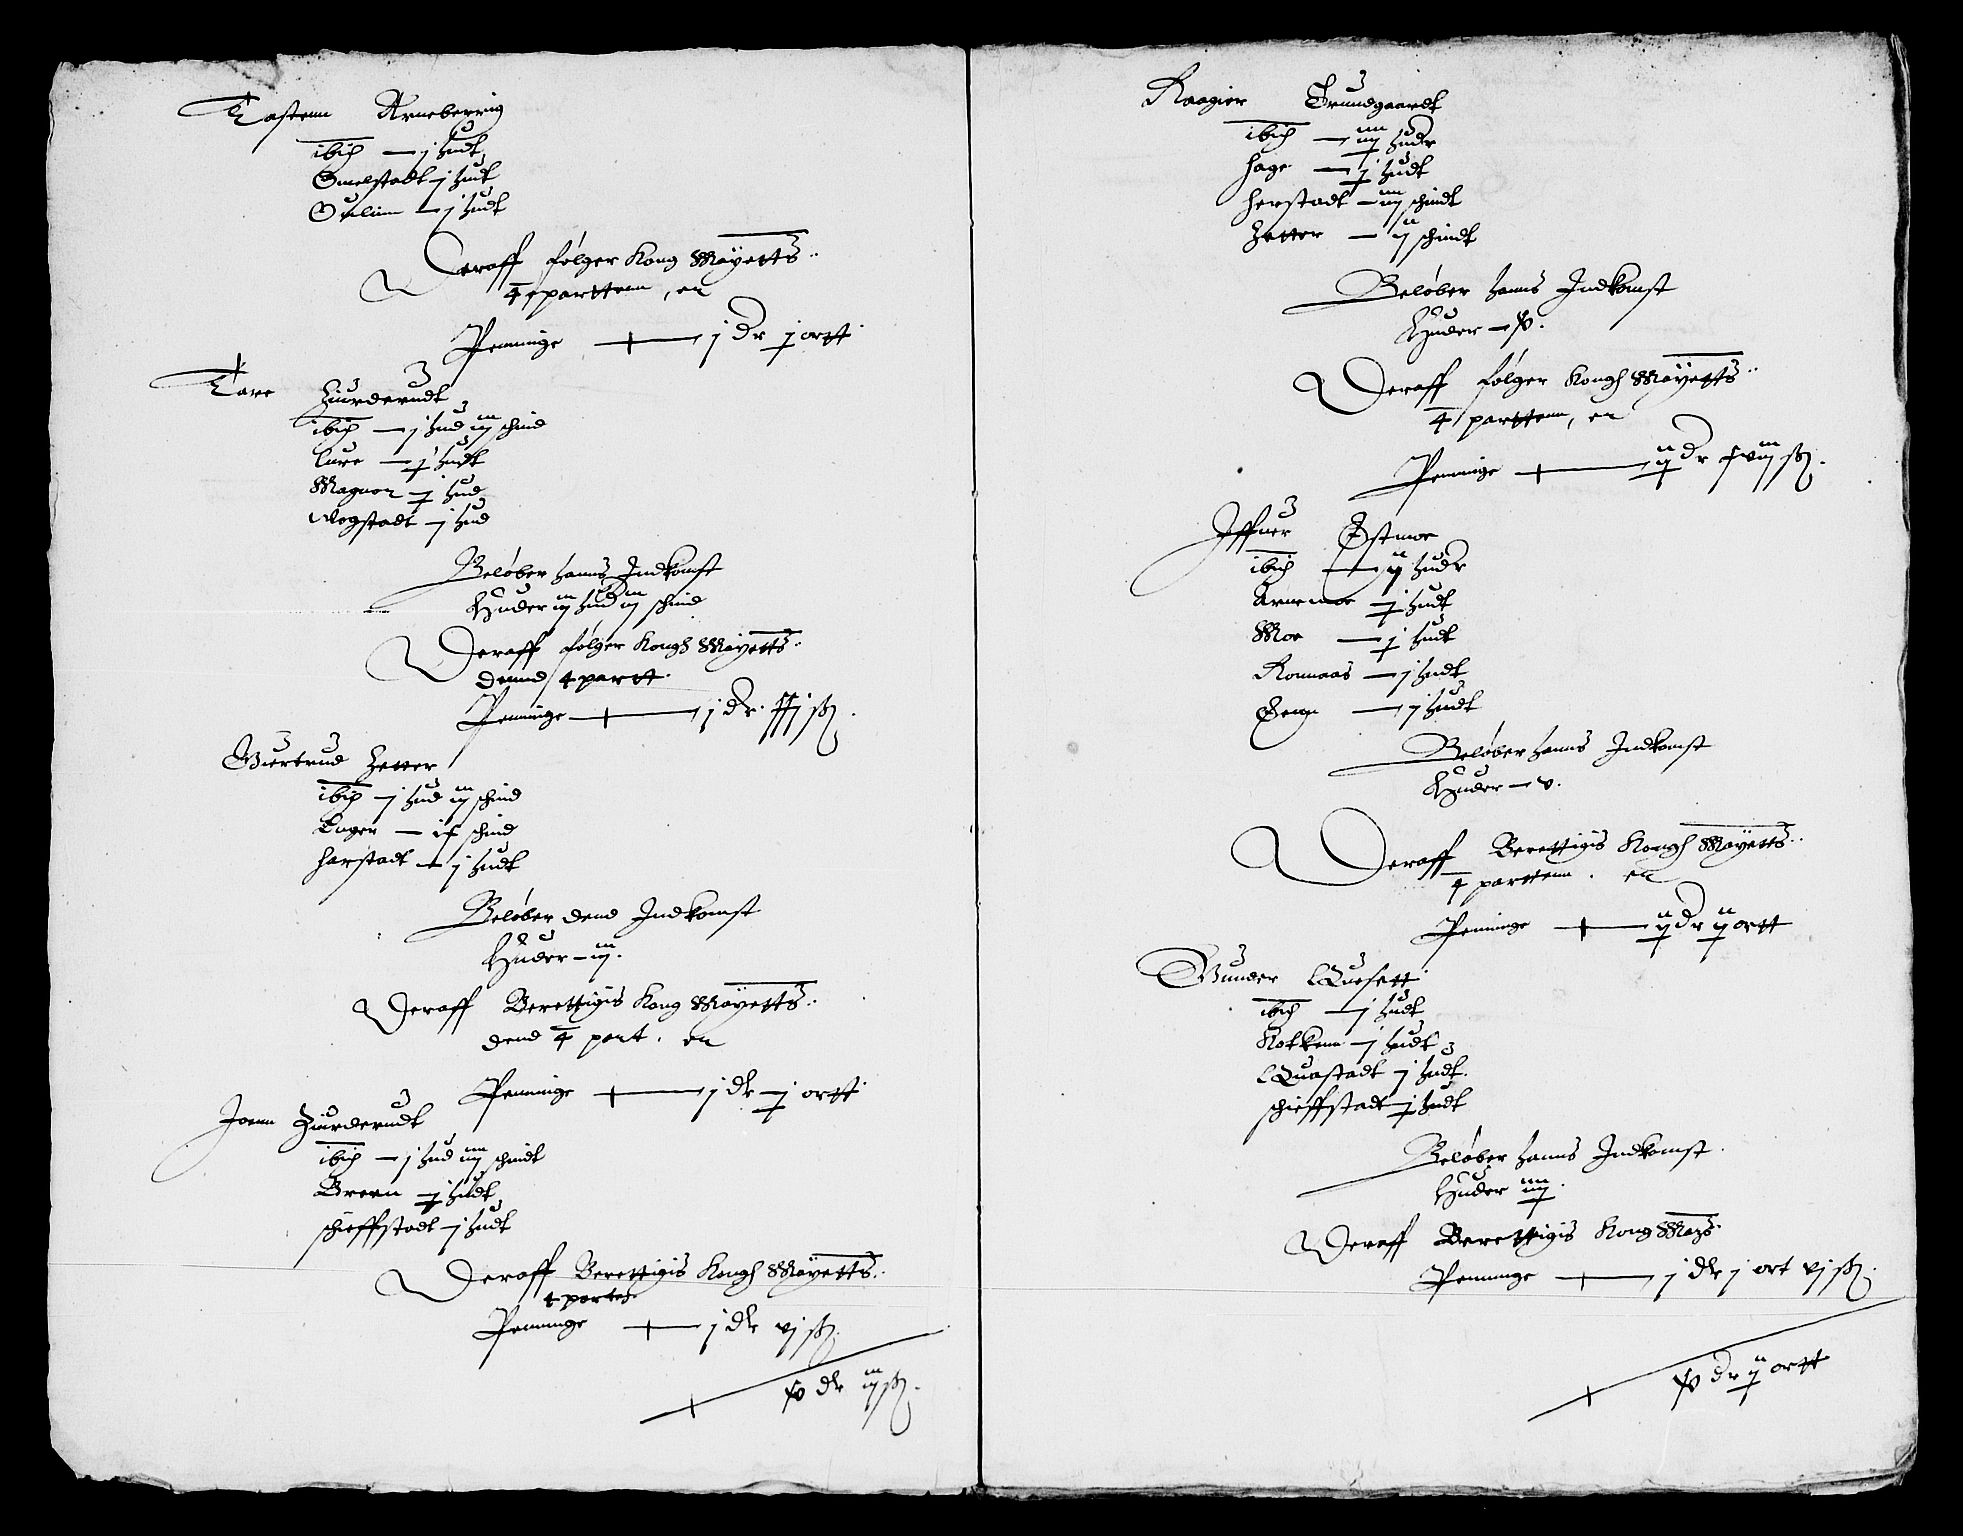 Tostenn Arneberrig
ibid — j hudt
Smelstadt j hudt
Sulium — j hudt
Deraff følger Kong Mayetts
4 parttenn, er
Penninge — j dr j ortt
Tore Hiurderudt
ibid — j hud iij schind
Lure — j hudt
Magnor j hud
Wogstadt j hud
Beløber hanns Indkomst
Huder iij hud iij schind
Deraff følger Kongh Mayetts
dennd 4 partt
Penninge — j dr. ß
Giertrud Hetter
ibid — j hud iij schind
Lager — schind
Harstadt — j hudt
Beløber dend Indkomst
Huder — iij.
Deraff Berettigis Kong Mayetts
dend 4 part. er
Penninge — j dlr j ortt
Joenn Hiurderudt
ibid — j hud iiij schindt
Breen j hudt
schieffstadt j hudt
Deraff Berettigis Kongh Mayetts
4 partes
Penninge — j dlr vj ß
dlr iij ß.
Roagier Grundgaardt
ibid — iiij hudr
Hage — j hudt
Herstadt — iiij schindt
Hetter — ij schindt
Beløber hanns Indkomst
Huder —
Deraff følger Kongh Mayetts
4 parttenn, er
Penninge — ij dr ß.
Iffuer Østmoe
ibid — ij hudr
Arnemoe j hudt
Moe — j hudt
Romaas — j hudt
— j hudt
Beløber hanns Indkomst
Huder — v.
Deraff Berettigis Kongh Mayetts
4 parttenn. er
Penninge — ij dr ij ortt
Gunder Quesett
ibid — j hudt
Kolkenn — j hudt
Quastadt j hudt
schieffstadt j hudt
Beløber hanns Indkomst
Huder iiij.
Deraff Berettigis Kong Mays
Penninge — j dlr j ort vj ß.
dr ij ortt